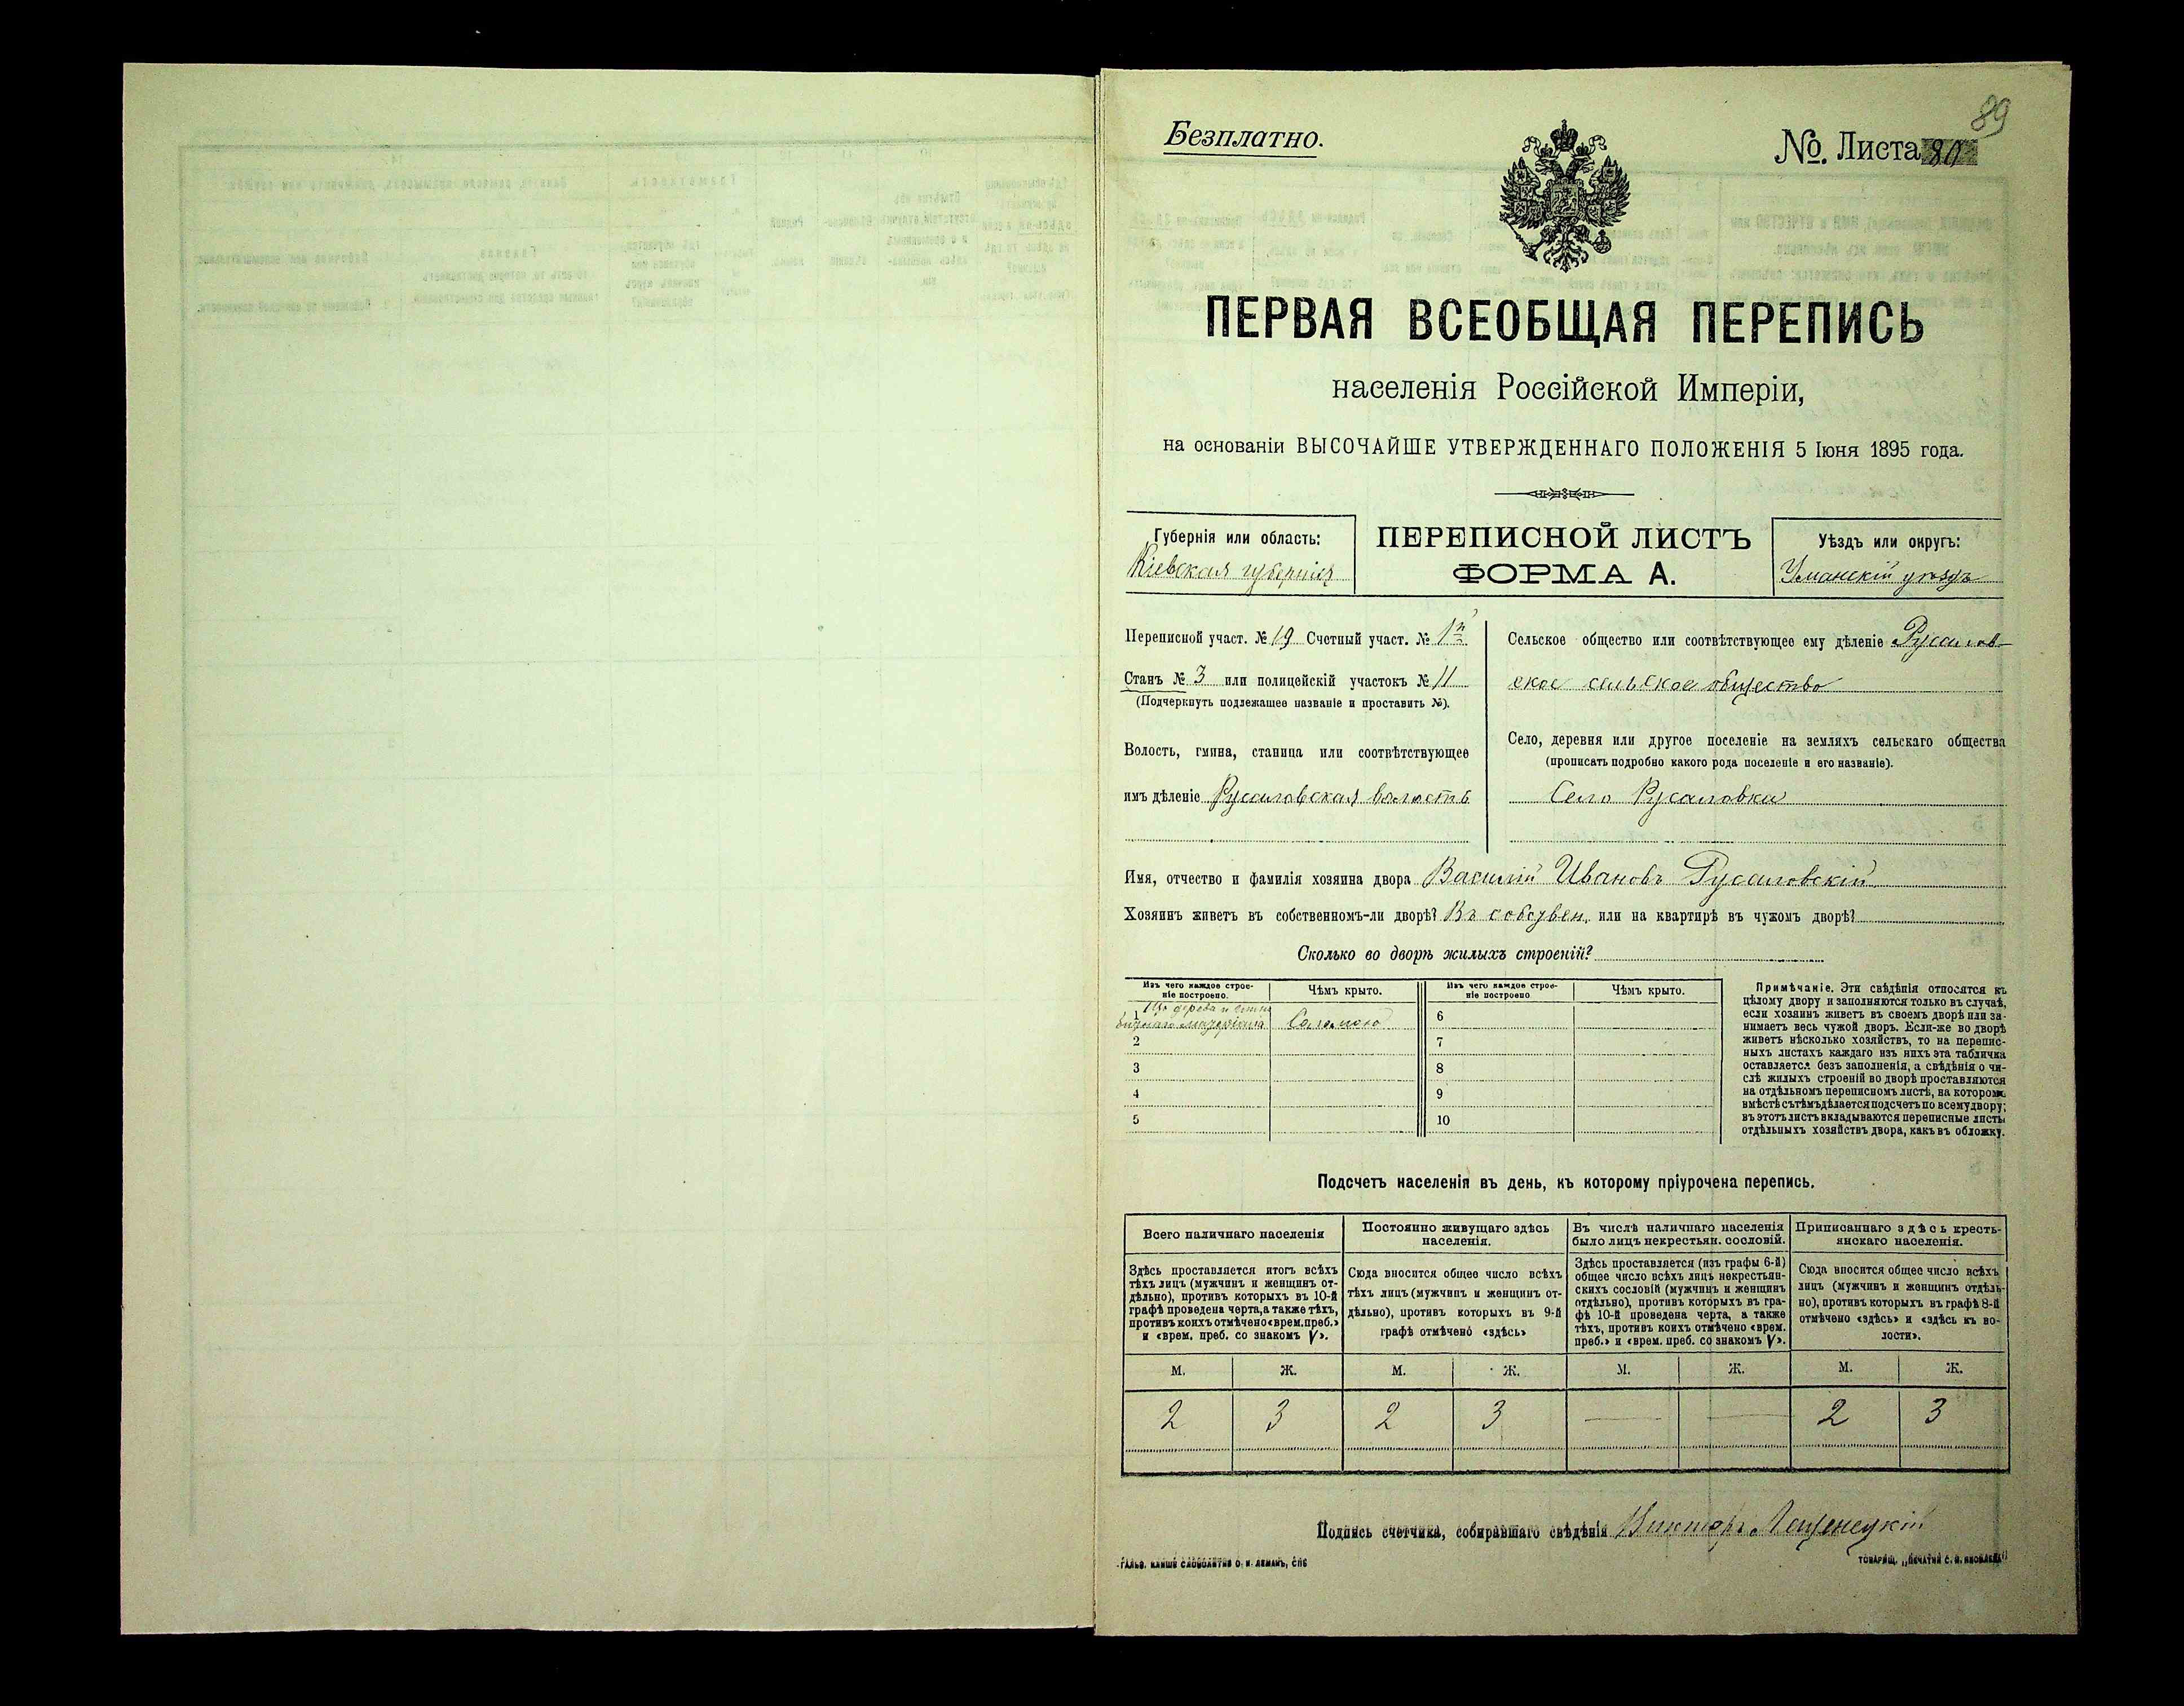 89
Безплатно.
№. Листа 80
ПЕРВАЯ ВСЕОБЩАЯ ПЕРЕПИСЬ
населенія Россійской Имперіи,
на основаніи ВЫСОЧАЙШЕ УТВЕРЖДЕННАГО ПОЛОЖЕНІЯ 5 Іюня 1895 года.
Губернія или область:
Кіевская губернія
ПЕРЕПИСНОЙ ЛИСТЪ
ФОРМА А.
Уѣздъ или округъ:
Уманскій уѣздъ
Переписной участ. № 19 Счетный участ. № 1й
Станъ № 3 или полицейскій участокъ № 11
(Подчеркнуть подлежащее названіе и проставить №).
Волость, гмина, станица или соотвѣтствующее
имъ дѣленіе Русаловская волость
Сельское общество или соотвѣтствующее ему дѣленіе Русалов-
ское сельское общество
Село, деревня или другое поселеніе на земляхъ сельскаго общества
(прописать подробно какого рода поселеніе и его названіе).
Село Русаловка
Имя, отчество и фамилія хозяина двора Василій Ивановъ Русаловскій
Хозяинъ живетъ въ собственномъ-ли дворѣ? Въ собствен. или на квартирѣ въ чужомъ дворѣ?
Сколько во дворѣ жилыхъ строеній?
Изъ чего каждое строе-
ніе построено.
Чѣмъ крыто.
Изъ чего каждое строе-
ніе построено
Чѣмъ крыто.
1 Изъ дерева и
Соломою
6
2
7
3
8
4
9
5
10
Примѣчаніе. Эти свѣдѣнія относятся къ
цѣлому двору и заполняются только въ случаѣ,
если хозяинъ живетъ въ своемъ дворѣ или за-
нимаетъ весь чужой дворъ. Если-же во дворѣ
живетъ нѣсколько хозяйствъ, то на перепис-
ныхъ листахъ каждаго изъ нихъ эта табличка
оставляется безъ заполненія, а свѣдѣнія о чи-
слѣ жилыхъ строеній во дворѣ проставляются
на отдѣльномъ переписномъ листѣ, на которомъ
вмѣстѣ съ тѣмъ дѣлается подсчетъ по всему двору;
въ этотъ листъ вкладываются переписные листы
отдѣльныхъ хозяйствъ двора, какъ въ обложку.
Подсчетъ населенія въ день, къ которому пріурочена перепись.
Всего наличнаго населенія
Постоянно живущаго здѣсь
населенія.
Въ числѣ наличнаго населенія
было лицъ некрестьян. сословій.
Приписаннаго здѣсь кресть-
янскаго населенія.
Здѣсь проставляется итогъ всѣхъ
тѣхъ лицъ (мужчинъ и женщинъ от-
дѣльно), противъ которыхъ въ 10-й
графѣ проведена черта, а также тѣхъ,
противъ коихъ отмѣчено «врем. преб.»
и «врем. преб. со знакомъ V».
Сюда вносится общее число всѣхъ
тѣхъ лицъ (мужчинъ и женщинъ от-
дѣльно), противъ которыхъ въ 9-й
графѣ отмѣчено «здѣсь»
Здѣсь проставляется (изъ графы 6-й)
общее число всѣхъ лицъ некрестьян-
скихъ сословій (мужчинъ и женщинъ
отдѣльно), противъ которыхъ въ гра-
фѣ 10-й проведена черта, а также
тѣхъ, противъ коихъ отмѣчено «врем.
преб.» и «врем. преб. со знакомъ V».
Сюда вносится общее число всѣхъ
лицъ (мужчинъ и женщинъ отдѣль-
но), противъ которыхъ въ графѣ 8-й
отмѣчено «здѣсь» и «здѣсь къ во-
лости».
М. Ж. М. Ж. М. Ж. М. Ж.
2 3 2 3 — — 2 3
Подпись счетчика, собиравшаго свѣдѣнія Викторъ
ГАЛЬВ. КЛИШЕ СЛОВОЛИТНИ О. И. ЛЕМАНЪ, СПБ
ТОВАРИЩ. „ПЕЧАТНЯ С. П. ЯКОВЛЕВА"